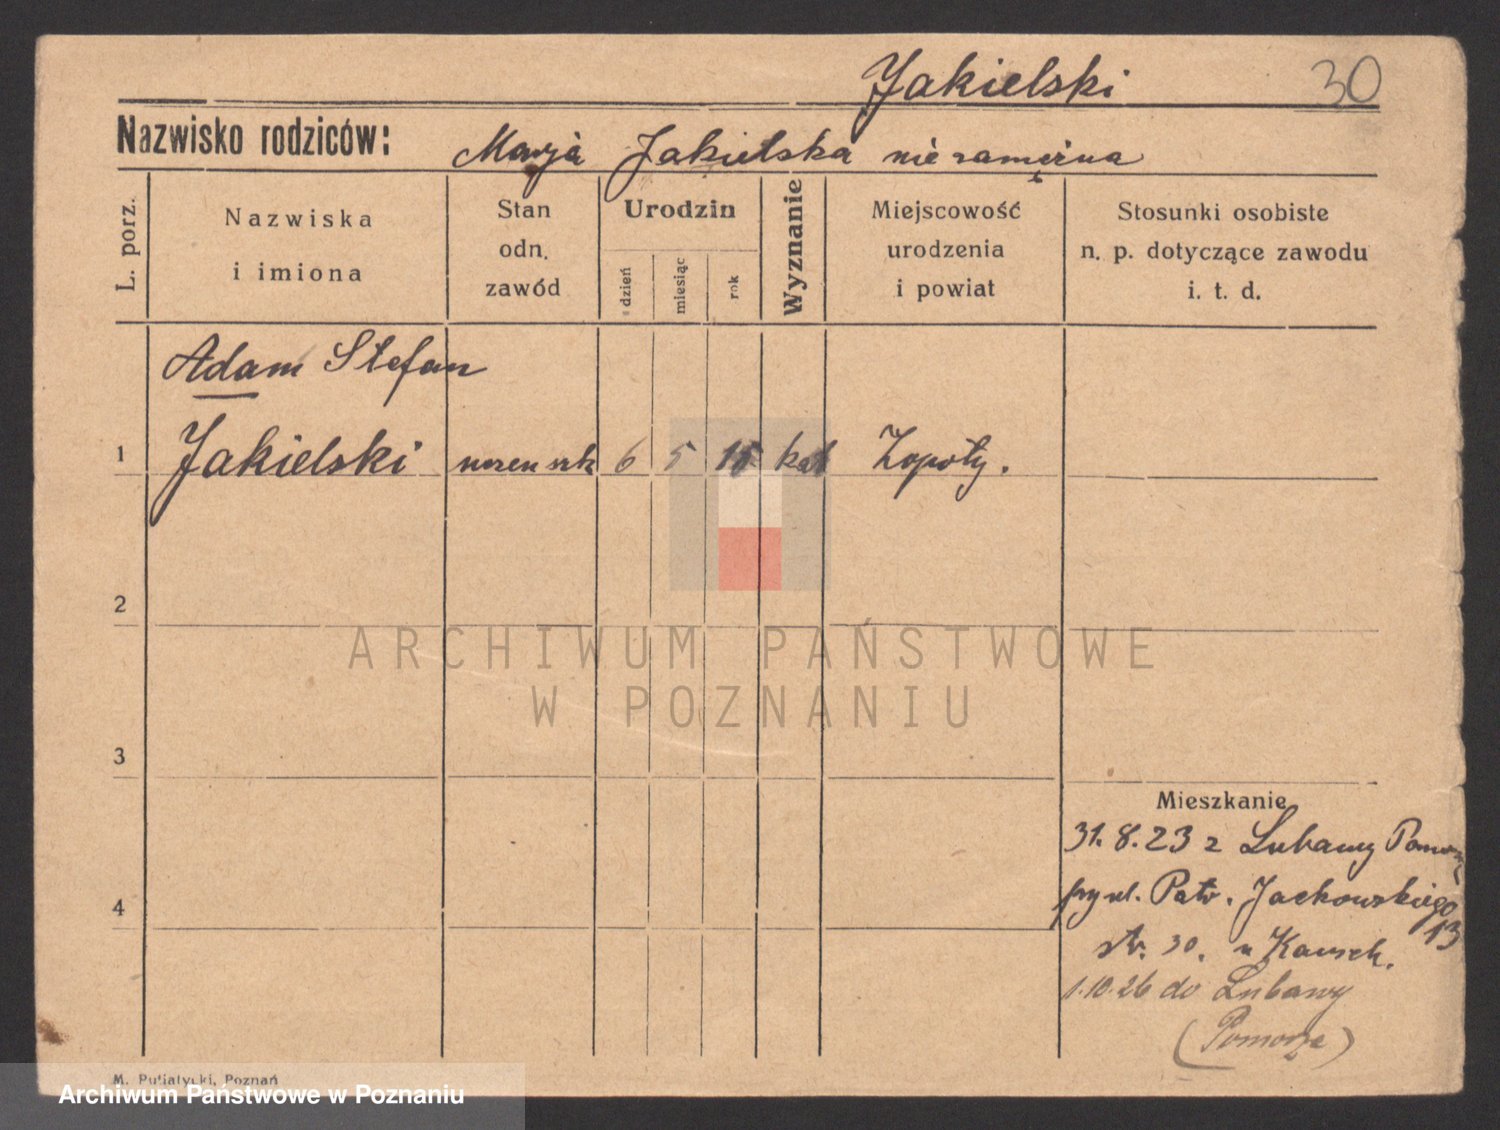 Jakielski 30
Nazwisko rodziców:
Marja Jakielska niezamężna
L. porz.
Nazwiska
i imiona
Stan
odn.
zawód
Urodzin
dzień
miesiąc
rok
Wyznanie
Miejscowość
urodzenia
i powiat
Stosunki osobiste
n. p. dotyczące zawodu
i. t. d.
Adam Stefan
1 Jakielski uczeń szk 6 5 15 kat Zopoty.
2
ARCHIWUM PAŃSTWOWE
W POZNANIU
3
Mieszkanie
31.8.23 z Lubawy Pomorze
przy ul. Patr. Jackowskiego
13
str. 30. u
1.10.26 do Lubawy
(Pomorze)
4
M. Putiatycki, Poznań
Archiwum Państwowe w Poznaniu